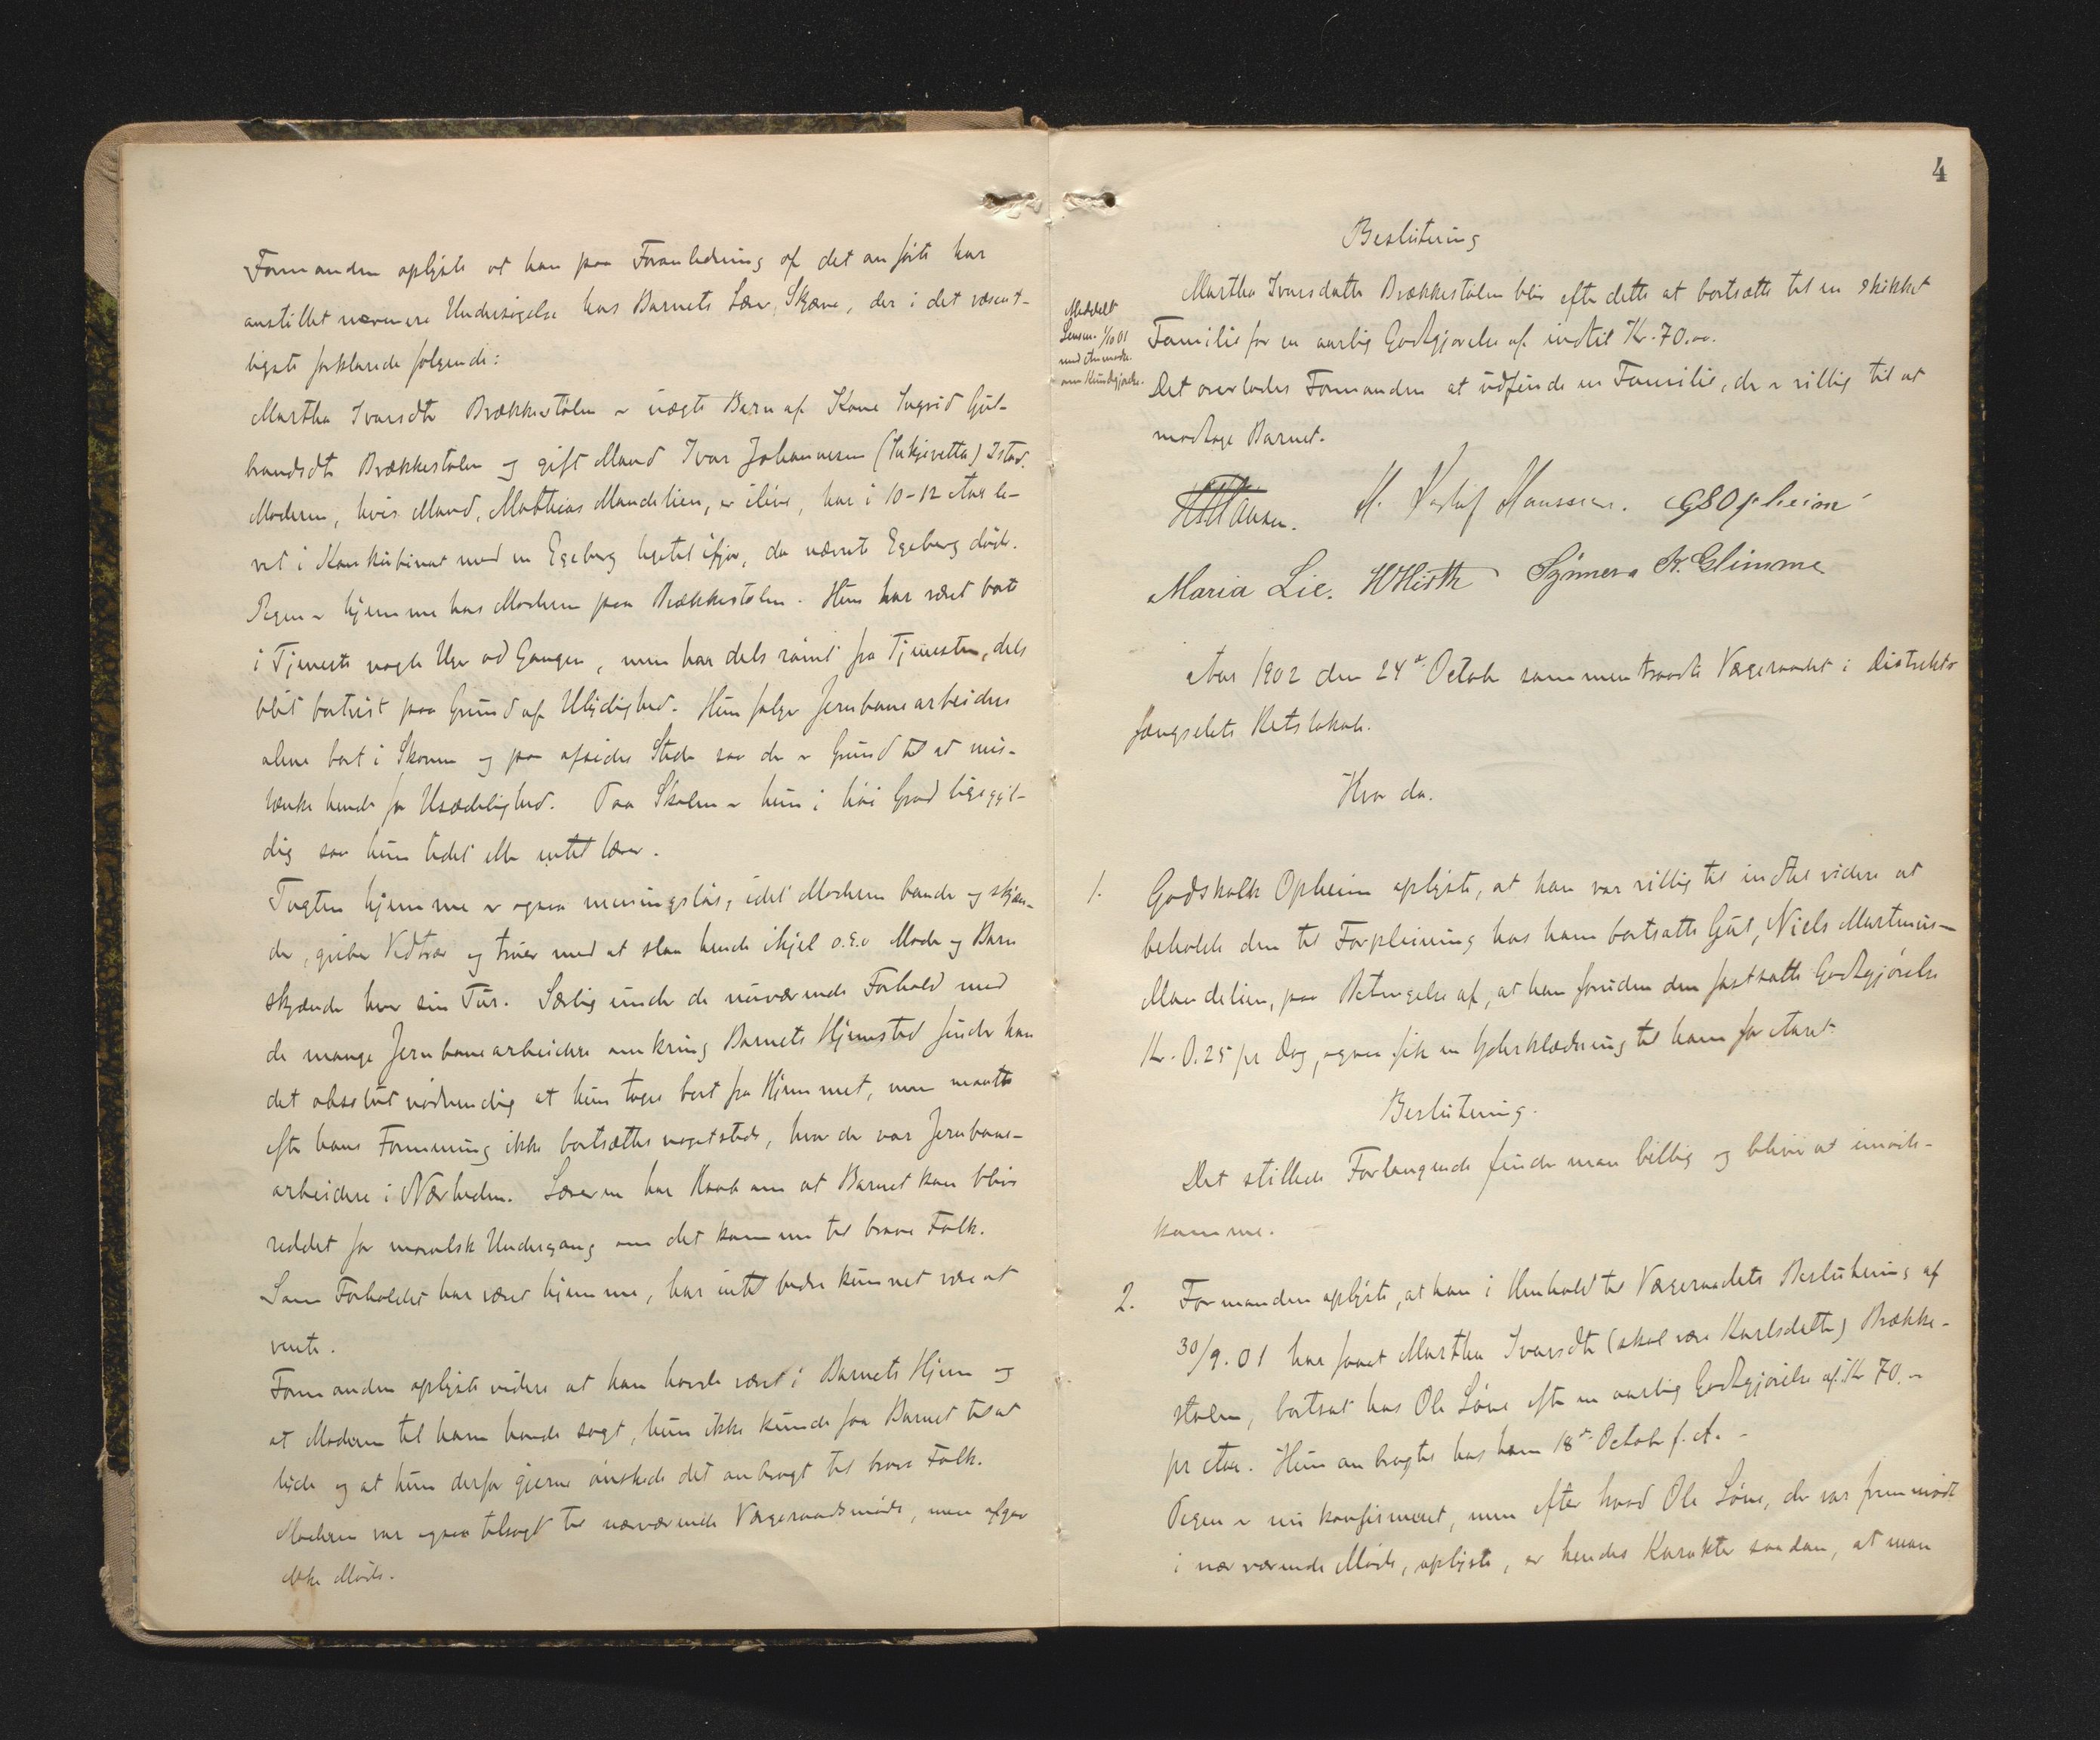 Formanden oplyste at han paa Foranledning af det anførte har
anstillet nærmere Undersøgelse hos Barnets Lærer, Skjerve, der i det væsent-
ligste forklarede følgende:
Martha Ivarsdtr Brækkestølen er uægte Barn af Kone Ingrid Gul-
brandsdtr Brækkestølen og gift Mand Ivar Johannesen Istad.
Moderen, hvis Mand, Mathias Mandelien, er ilive, har i 10-12 Aar le-
vet i Konkubinat med en Egeberg ligetil ifjor, da nævnte Egeberg døde.
Pigen er hjemme hos Moderen paa Brækkestølen. Hun har været borte
i Tjeneste nogle Uger ad Gangen, men har dels rømt fra Tjenesten, dels
blit bortvist paa Grund af Ulydighed. Hun følger Jernbanearbeidere
alene bort i Skoven og paa afsides Steder saa der er Grund til at mis-
tænke hende for Usædelighed. Paa Skolen er hun i høi Grad ligegyl-
dig saa hun lidet eller intet lærer.
Tugten hjemme er ogsaa meningsløs, idet Moderen bander og skjæn-
der, griber Vedtrær og truer med at slaa hende ihjel o.s.v Moder og Barn
skjænder hver sin Tur. Særlig under de nuværende Forhold med
de mange Jernbanearbeidere omkring Barnets Hjemsted finder han
det absolut nødvendig at hun tages bort fra Hjemmet, men maatte
efter hans Formening ikke bortsættes nogetsteds, hvor der var Jernbane-
arbeidere i Nærheden. Læreren har Haab om at Barnet kan blive
reddet for moralsk Undergang om det kommer til brave Folk.
Som Forholdet har været hjemme, har intet bedre kunnet være at
vente.
Formanden oplyste videre at han havde været i Barnets Hjem og
at Moderen til ham havde sagt, hun ikke kunde faa Barnet til at
lyde og at hun derfor gjerne ønskede det anbragt til brave Folk.
Moderen var ogsaa tilsagt til nærværende Værgeraadsmøde, men afgav
ikke Møde.
4
Beslutning
Martha Ivarsdatter Brækkestølen blir efter dette at bortsætte til en skikket
Familie for en aarlig Godtgjørelse af indtil Kr. 70.00.
Det overlades Formanden at udfinde en Familie, der er villig til at
modtage Barnet.
Meddelt
Lensm. 1/10 01
med Anmodn.
om Kundgjørelse.
Hansen. H. Hanssen. G S Opheim
Maria Lie. Synneva K. Glimme
Aar 1902 den 24de October sammentraadte Værgeraadet i Distrikts
fængselets Retslokale.
Hvor da.
1. Godskalk Opheim oplyste, at han var villig til indtil videre at
beholde den til Forpleining hos ham bortsatte Gut, Niels Martinus
Mandelien, paa Betingelse af, at han foruden den fastsatte Godtgjørelse
Kr. 0.25 pr Dag, ogsaa fik en Yderklædning til ham for Aaret.
Beslutning.
Det stillede Forlangende finder man billig og bliver at imøde-
komme.
2. Formanden oplyste, at han i Henhold til Værgeraadets Beslutning af
30/9.01 har faaet Martha Ivarsdtr (skal være Karlsdatter) Brække-
stølen, bortsat hos Ole Løne efter en aarlig Godtgjørelse af Kr 70.-
pr Aar. Hun anbragtes hos ham 18de October f. A. -
Pigen er nu konfirmeret, men efter hvad Ole Løne, der var fremmødt
i nærværende Møde, oplyste, er hendes Karakter saadan, at man